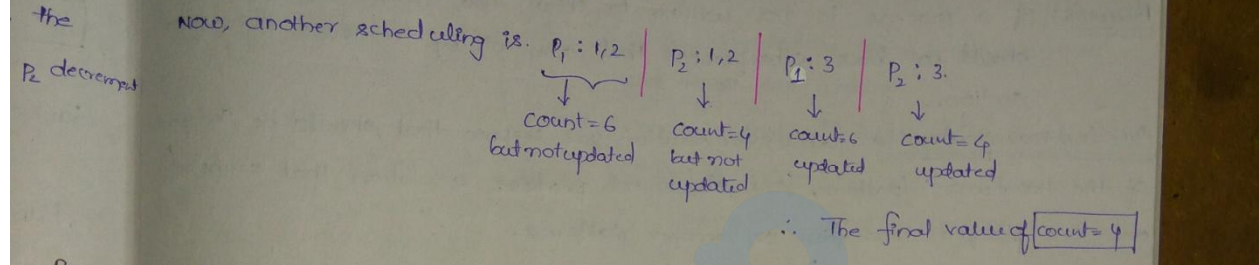 the
P₂ decrement
Now, another scheduling is. P₁ : 1,2 | P₂ : 1,2 | P₁ : 3 | P₂ : 3.
↓ ↓ ↓ ↓
count = 6 count = 4 count = 6 count = 4
but not updated but not updated updated
updated
∴ The final value of count = 4